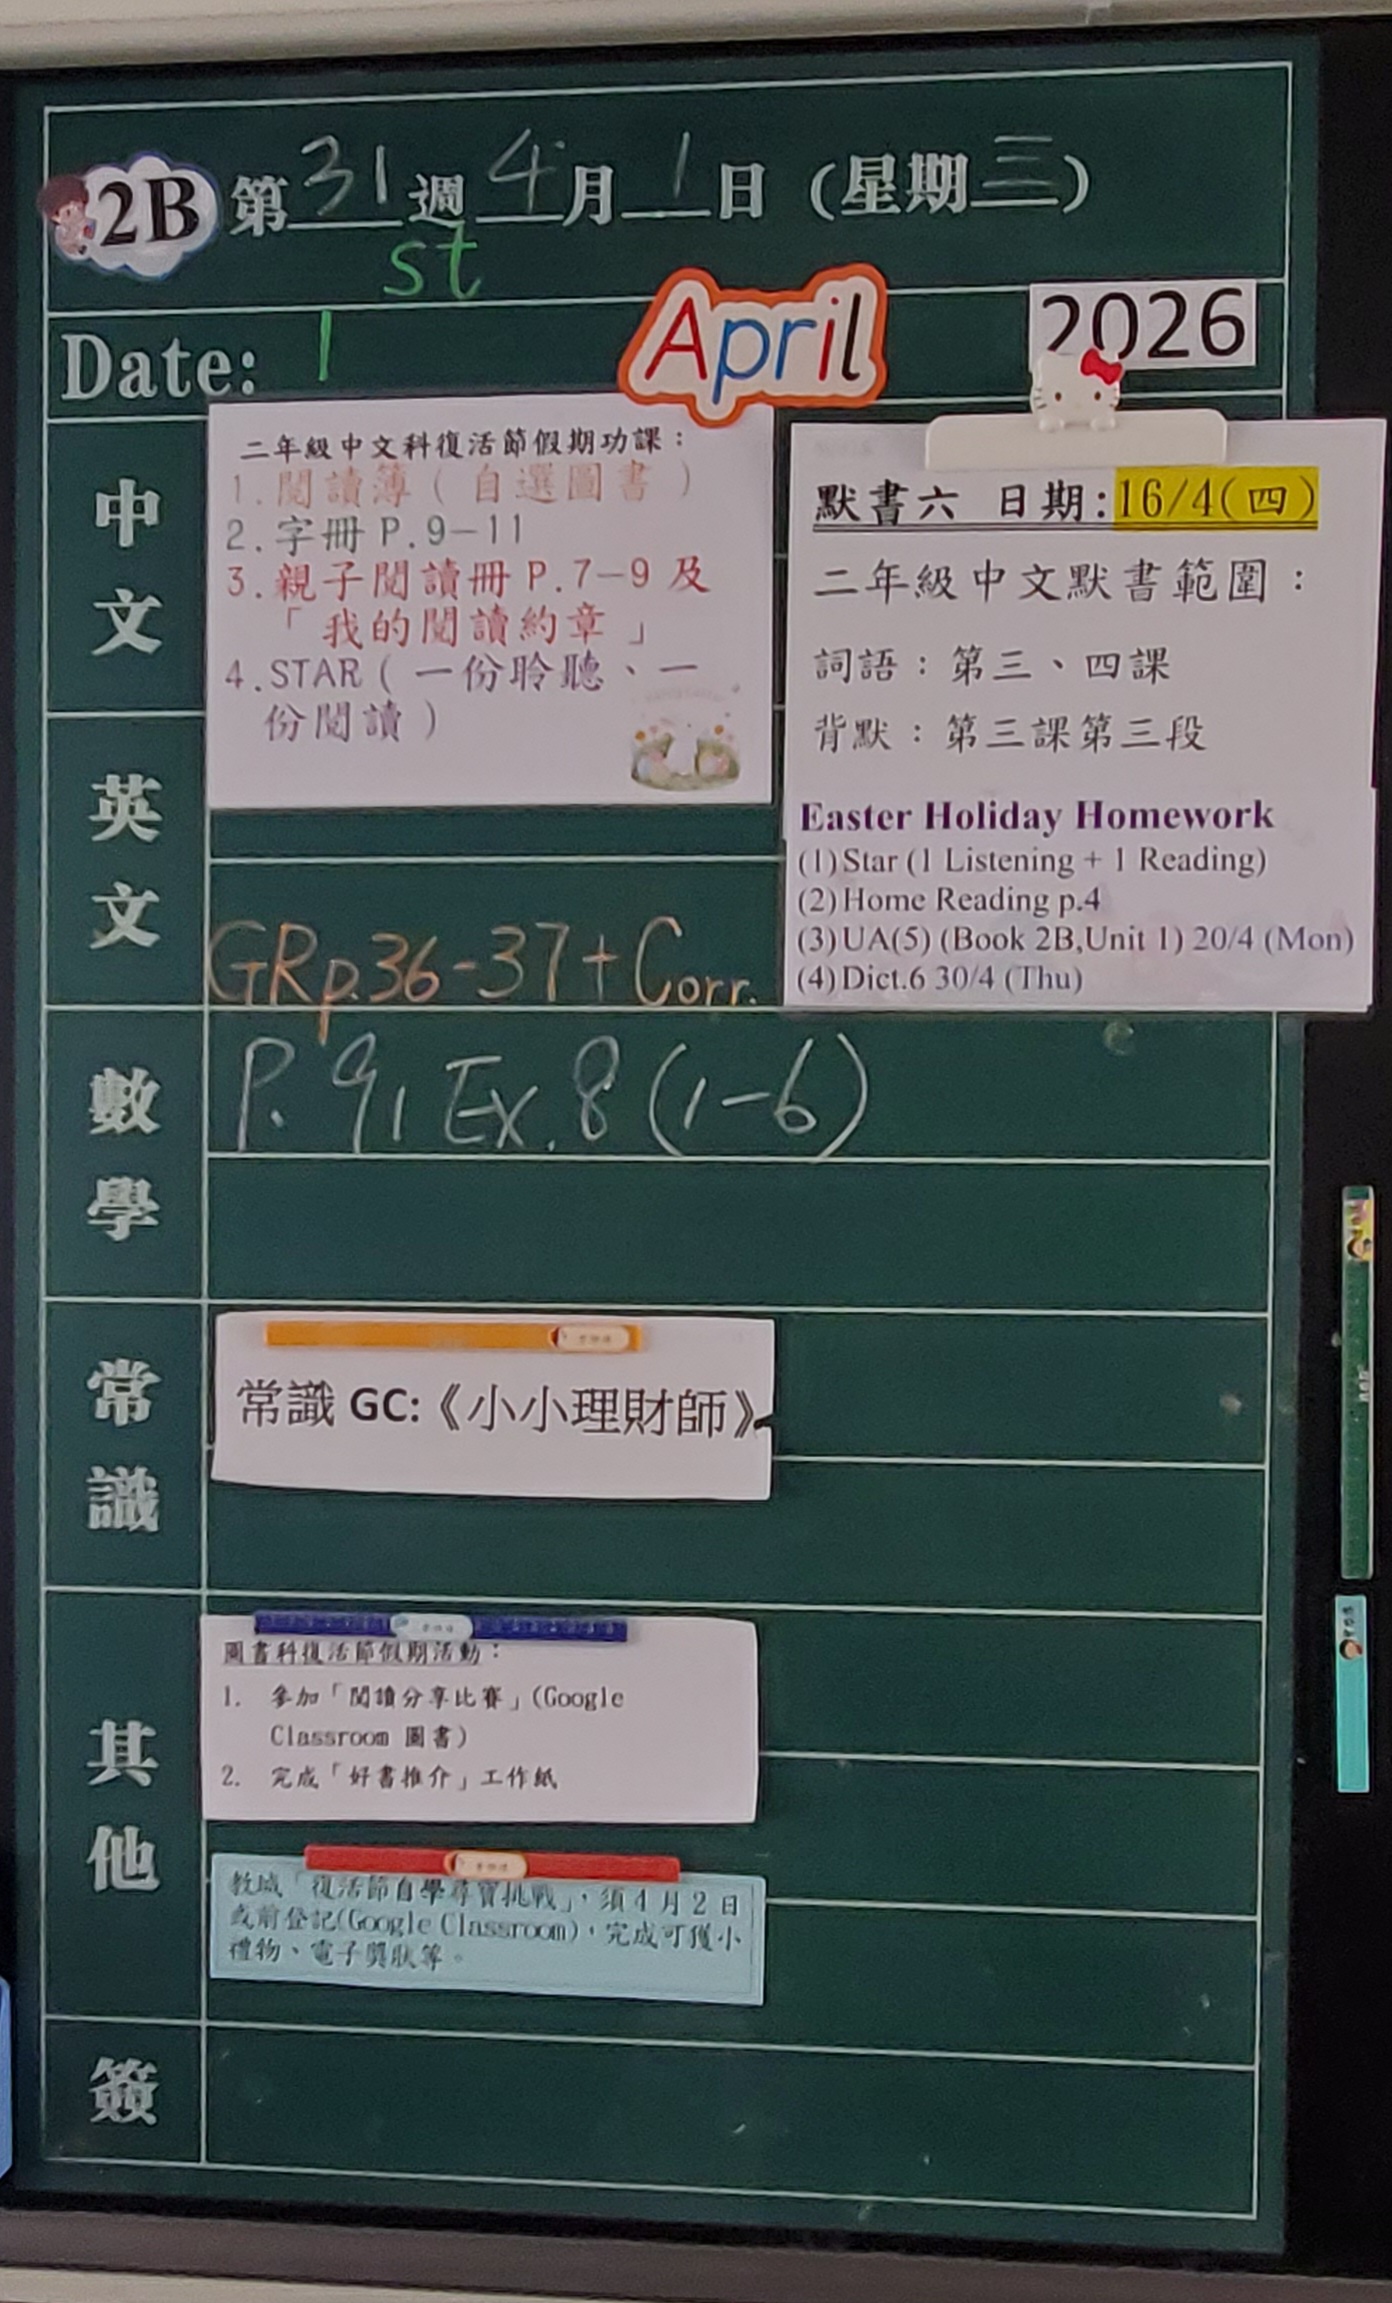 2B 第31週4月1日(星期三)
st
Date: 1 April 2026
中文
二年級中文科復活節假期功課：
1.閱讀簿(自選圖書)
2.字冊P.9-11
3.親子閱讀冊P.7-9及
「我的閱讀約章」
4.STAR(一份聆聽、一
份閱讀)
默書六 日期:16/4(四)
二年級中文默書範圍：
詞語：第三、四課
背默：第三課第三段
Easter Holiday Homework
(1)Star (1 Listening + 1 Reading)
(2)Home Reading p.4
(3)UA(5) (Book 2B,Unit 1) 20/4 (Mon)
(4)Dict.6 30/4 (Thu)
英文
GRp.36-37+Corr.
數學
P.91 Ex.8(1-6)
常識
常識 GC:《小小理財師》
其他
圖書科復活節假期活動：
1. 參加「閱讀分享比賽」(Google
Classroom 圖書)
2. 完成「好書推介」工作紙
教城「復活節自學尋寶挑戰」，須4月2日
或前登記(Google Classroom)，完成可獲小
禮物、電子獎狀等。
簽